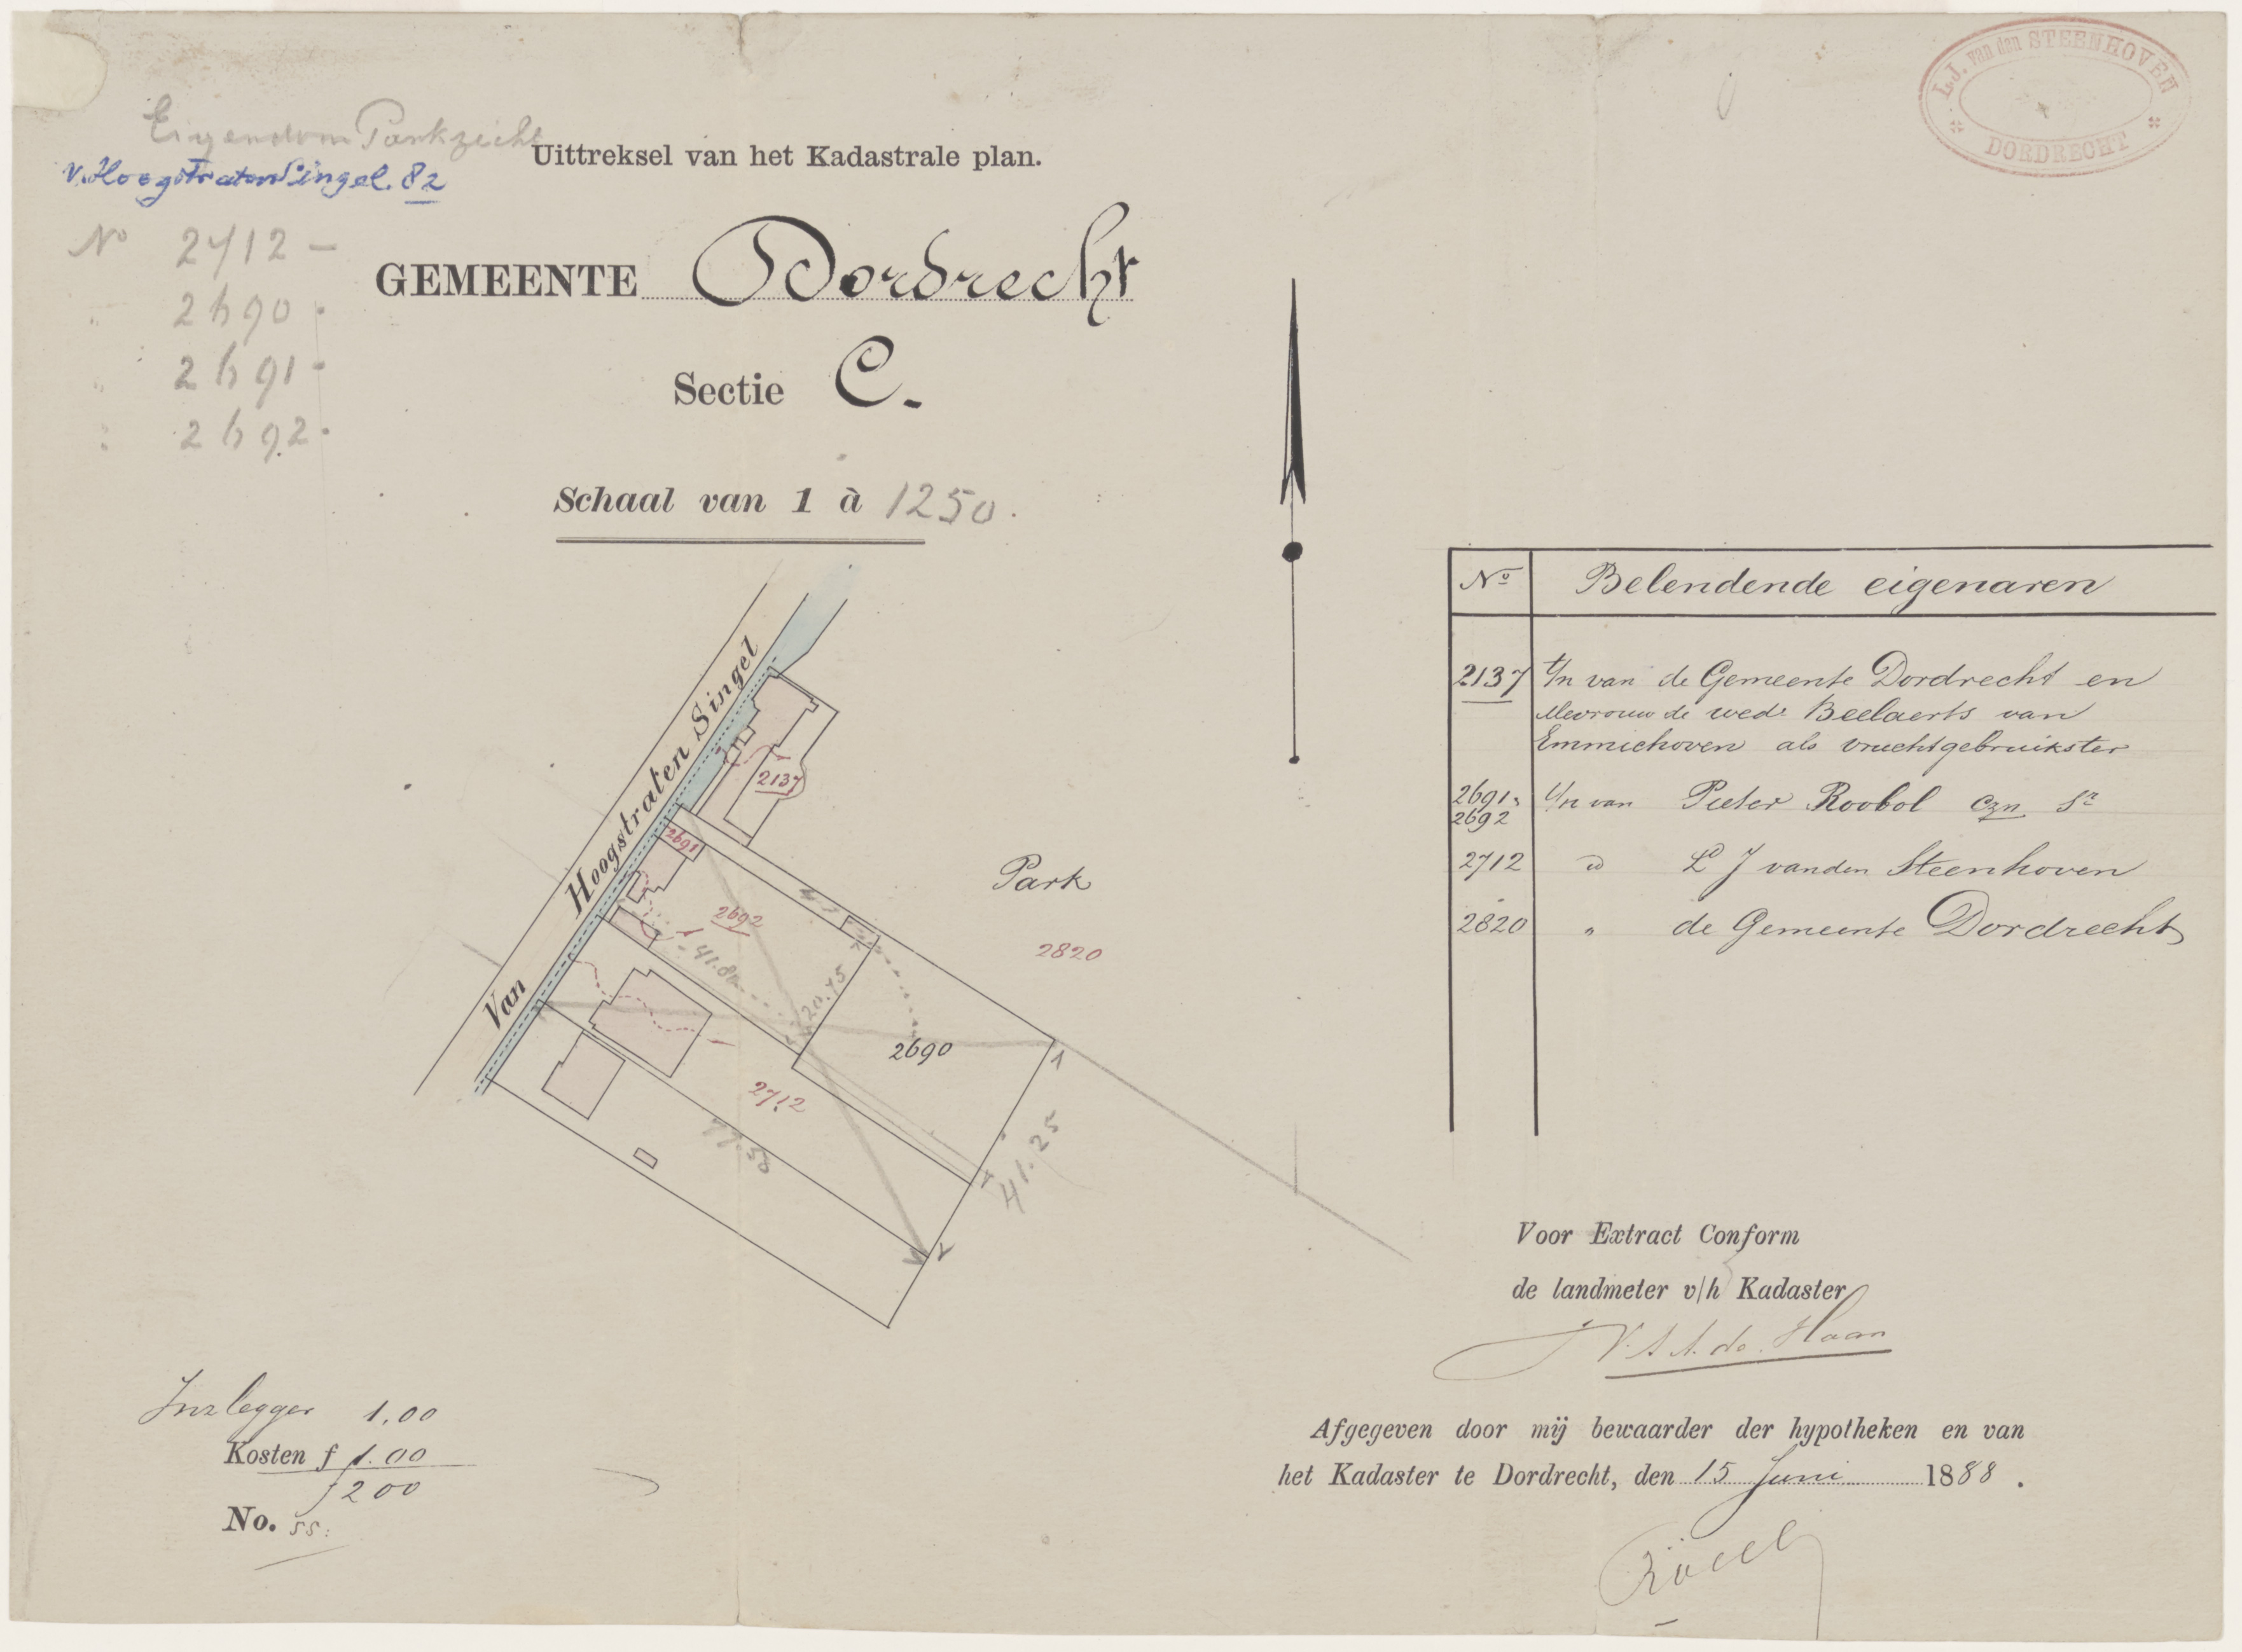 L.J. van den STEENHOVEN
DORDRECHT
Eigendom Parkzicht
v. HoogstratenSingel. 82
No 2712 -
2690
2691
2692
Uittreksel van het Kadastrale plan.
GEMEENTE Dordrecht
Sectie C.
Schaal van 1 à 1250.
Van Hoogstraten Singel
2137
2691
2692
41.80
20.75
2690
2712
77.50
41.25
Park
2820
No Belendende eigenaren
2137 t/n van de Gemeente Dordrecht en
Mevrouw de wede Beelaerts van
Emmichoven als vruchtgebruikster
2691, t/n van Pieter Roobol Czn Sr
2692
2712 " L J van den Steenhoven
2820 " de Gemeente Dordrecht
Voor Extract Conform
de landmeter v/h Kadaster
de Haan
Afgegeven door mij bewaarder der hypotheken en van
het Kadaster te Dordrecht, den 15 Juni 1888.
Inz legger 1.00
Kosten f 1.00
f 2 00
No. 55.